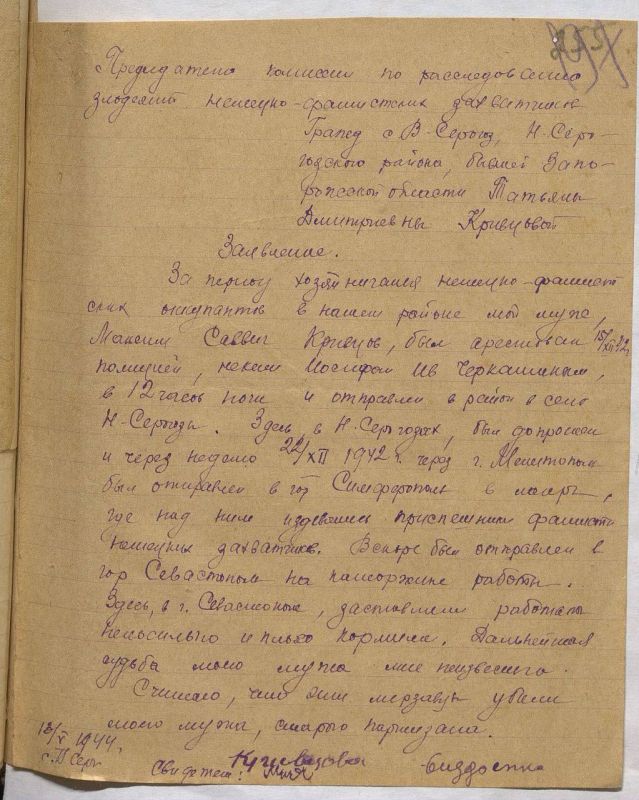 Председателю комиссии по расследованию
злодеяний немецко-фашистских захватчиков
Гражд с В-Серогоз, Н-Серо-
гозского района, бывшей Запо-
рожской области Татьяны
Дмитриевны Кривцовой
Заявление.
За период хозяйничания немецко-фашист
ских оккупантов в нашем районе мой муж,
Максим Саввич Кривцов, был арестован 15/XII 42
полицией, неким Иосифом Ив Черкашиным,
в 12 часов ночи и отправлен в район в село
Н-Серогозы. Здесь, в Н. Серогозах, был допрошен
и через неделю 22/XII 1942 г. через г. Мелитополь
был отправлен в гор Симферополь в лагерь,
где над ним издевались приспешники фашистк
немецких захватчиков. Вскоре был отправлен в
гор Севастополь на каторжные работы.
Здесь, в г. Севастополе, заставляли работать
непосильно и плохо кормили. Дальнейшая
судьба моего мужа мне неизвестна.
Считаю, что эти мерзавцы убили
моего мужа, старого партизана.
/V 1944.
с. В Серог
Свидетели: